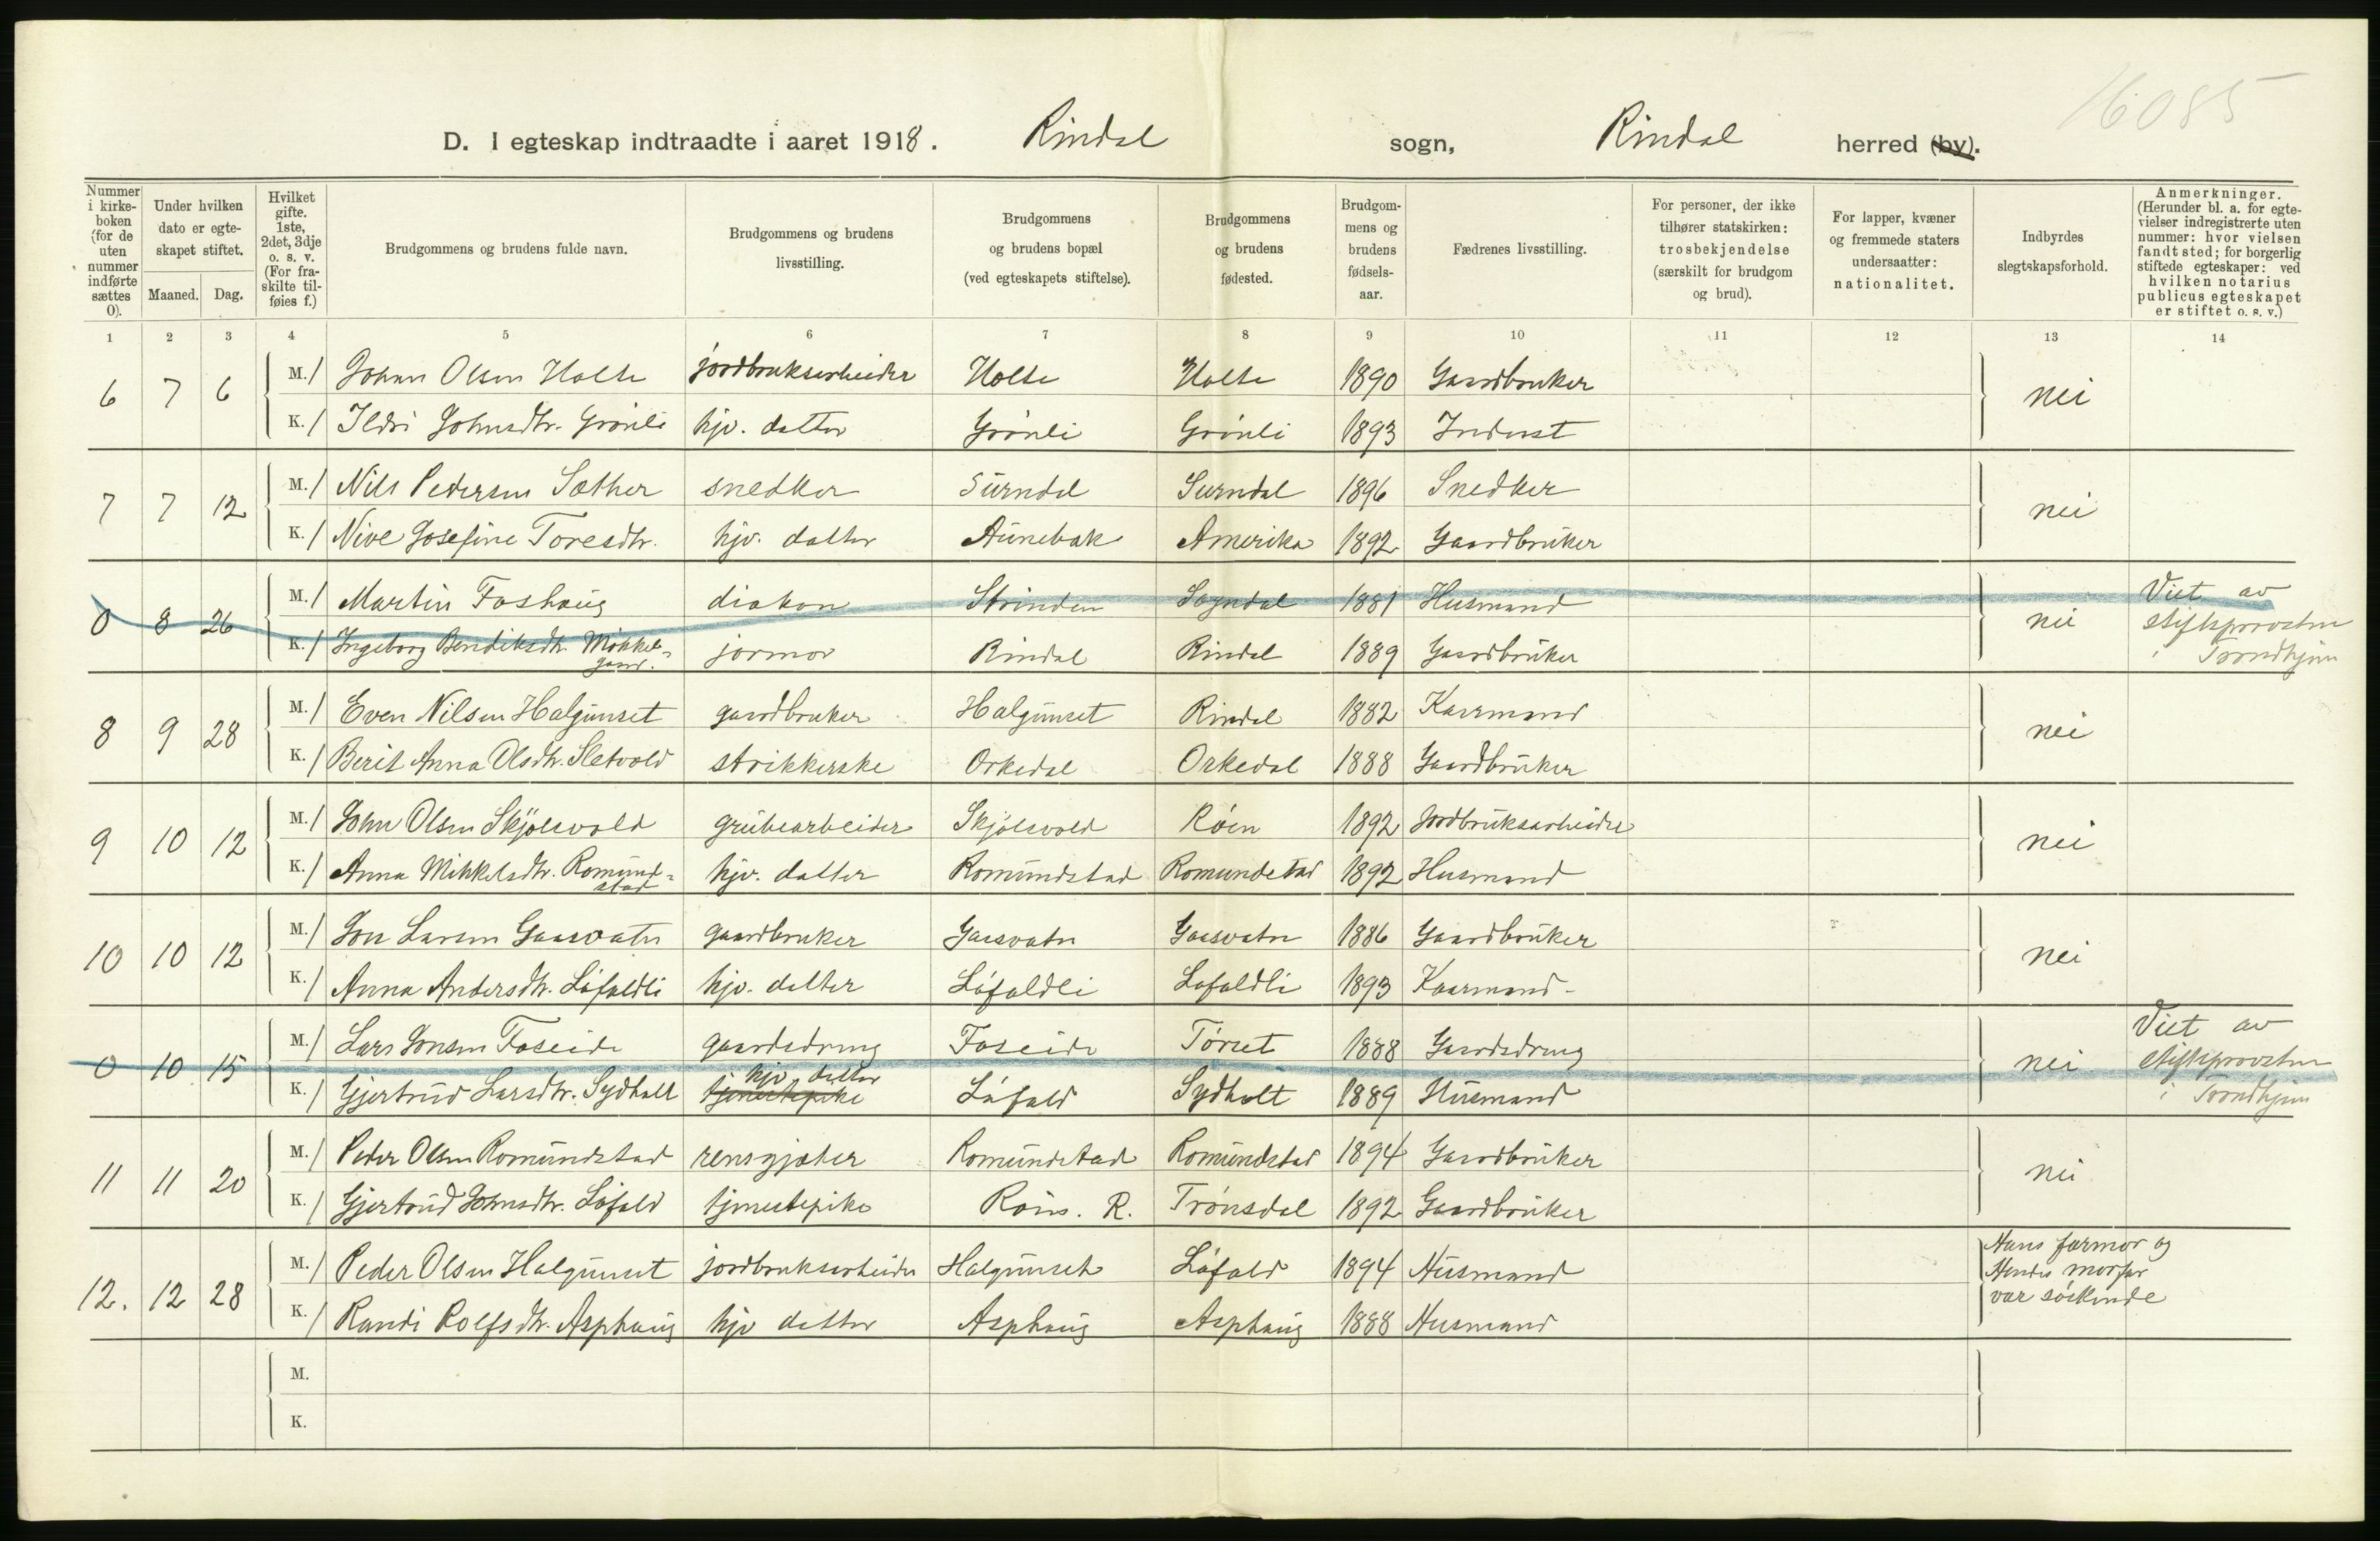 16085
D. I egteskap indtraadte i aaret 1918. Rindal sogn, Rindal herred (by).
Nummer i kirkeboken (for de uten nummer indførte sættes 0).
Under hvilken dato er egteskapet stiftet.
Maaned. Dag.
Hvilket gifte. 1ste, 2det, 3dje o. s. v. (For fraskilte tilføies f.)
Brudgommens og brudens fulde navn.
Brudgommens og brudens livsstilling.
Brudgommens og brudens bopæl (ved egteskapets stiftelse).
Brudgommens og brudens fødested.
Brudgommens og brudens fødselsaar.
Fædrenes livsstilling.
For personer, der ikke tilhører statskirken: trosbekjendelse (særskilt for brudgom og brud).
For lapper, kvæner og fremmede staters undersaatter: nationalitet.
Indbyrdes slegtskapsforhold.
Anmerkninger. (Herunder bl. a. for egtevielser indregistrerte uten nummer: hvor vielsen fandt sted; for borgerlig stiftede egteskaper: ved hvilken notarius publicus egteskapet er stiftet o. s. v.)
1 2 3 4 5 6 7 8 9 10 11 12 13 14
6 7 6 M. / Johan Olsen Holte jordbruksarbeider Holte Holte 1890 Gaardbruker nei
K. / Ildri Johnsdtr. Grönli hjv. datter Grönli Grönli 1893 Inderst
7 7 12 M. / Nils Pedersen Sæther snedker Surndal Surndal 1896 Snedker nei
K. / Nive Josefine Toresdtr. hjv. datter Aunebak Amerika 1892 Gaardbruker
0 8 26 M. / Martin Foshaug diakon Strinden Sogndal 1881 Husmand nei Viet av stiftsprovsten i Trondhjem
K. / Ingeborg Bendiksdtr. Mikkelsgaard. jormor Rindal Rindal 1889 Gaardbruker
8 9 28 M. / Even Nilsen Halgunset gaardbruker Halgunset Rindal 1882 Kaarmand nei
K. / Berit Anna Olsdtr. Sletvold strikkerske Orkedal Orkedal 1888 Gaardbruker
9 10 12 M. / John Olsen Skjölsvold grubearbeider Skjölsvold Röen 1892 Jordbruksarbeider nei
K. / Anna Mikkelsdtr. Romundstad hjv. datter Romundstad Romundstad 1892 Husmand
10 10 12 M. / Jon Larsen Gaasvatn gaardbruker Gaasvatn Gaasvatn 1886 Gaardbruker nei
K. / Anna Andersdtr. Löfaldli hjv. datter Löfaldli Löfaldli 1893 Kaarmand
0 10 15 M. / Lars Jonsen Foseide gaardsdreng Foseide Törset 1888 Gaardsdreng nei Viet av stiftsprovsten i Trondhjem
hjv datter
K. / Gjertrud Larsdtr. Sydhalt tjenestepike Löfald Sydhalt 1889 Husmand
11 11 20 M. / Peder Olsen Romundstad rensgjæter Romundstad Romundstad 1894 Gaardbruker nei
K. / Gjertrud Johnsdtr. Löfald tjenestepike Röen. R. Trönsdal 1892 Gaardbruker
12. 12 28 M. / Peder Olsen Halgunset jordbruksarbeider Halgunset Löfald 1894 Husmand Hans farmor og Hendes morfar var söskende
K. / Randi Rolfsdtr. Asphaug hjv datter Asphaug Asphaug 1888 Husmand
M.
K.